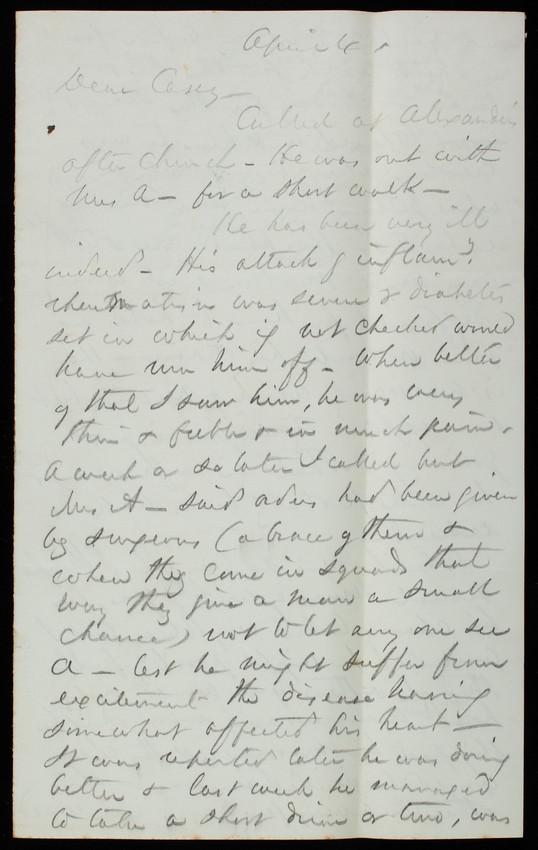 April 4
Dear Casey—
Called at Alexander's
after church — He was out with
Mrs A — for a short walk —
He has been very ill
indeed — His attack of inflamy
rheumatism was severe & diabetes
set in which if not checked would
have run him off — When better
of that I saw him, he was very
thin & feeble & in much pain.
A week or so later I called but
Mrs A — said orders had been given
by surgeons (a brace of them &
when they come in squads that
way they give a man a small
chance) not to let any one see
A — lest he might suffer from
excitement the disease having
somewhat affected his heart —
It was reported later he was doing
better & last week he managed
to take a short drive or two, was